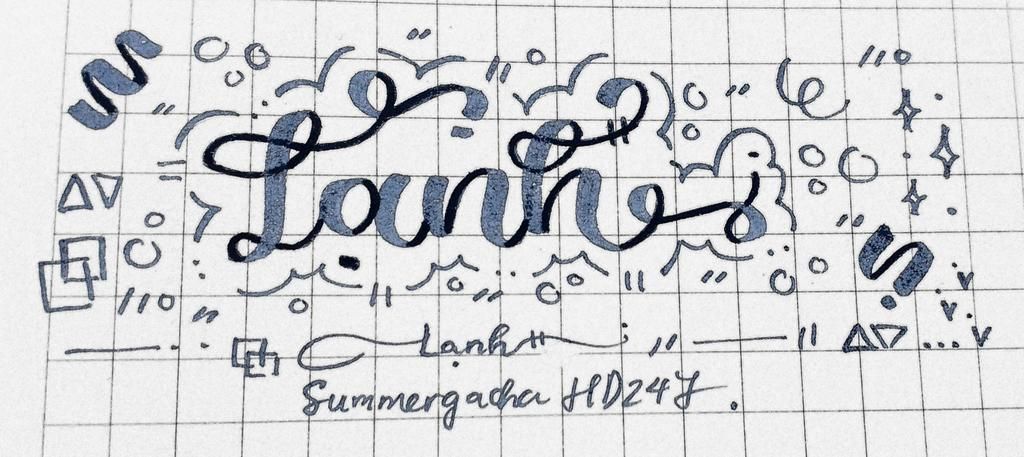 Lạnh
Lạnh
Summergacha HD24J.